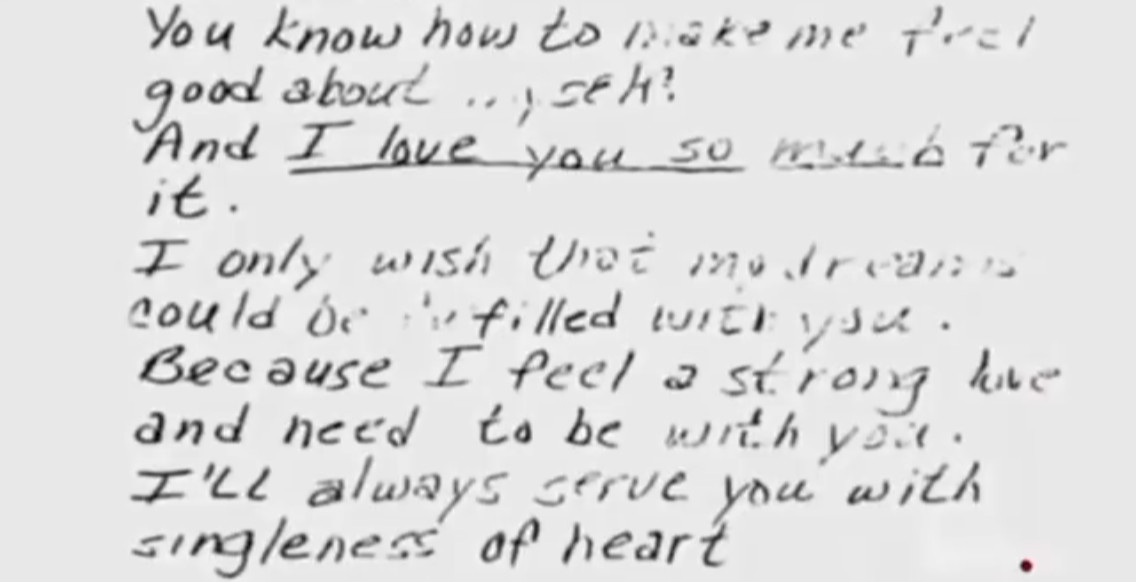 You know how to make me feel
good about myself!
And I love you so much for
it.
I only wish that my dreams
could be fulfilled with you.
Because I feel a strong love
and need to be with you.
I'LL always serve you with
singleness of heart